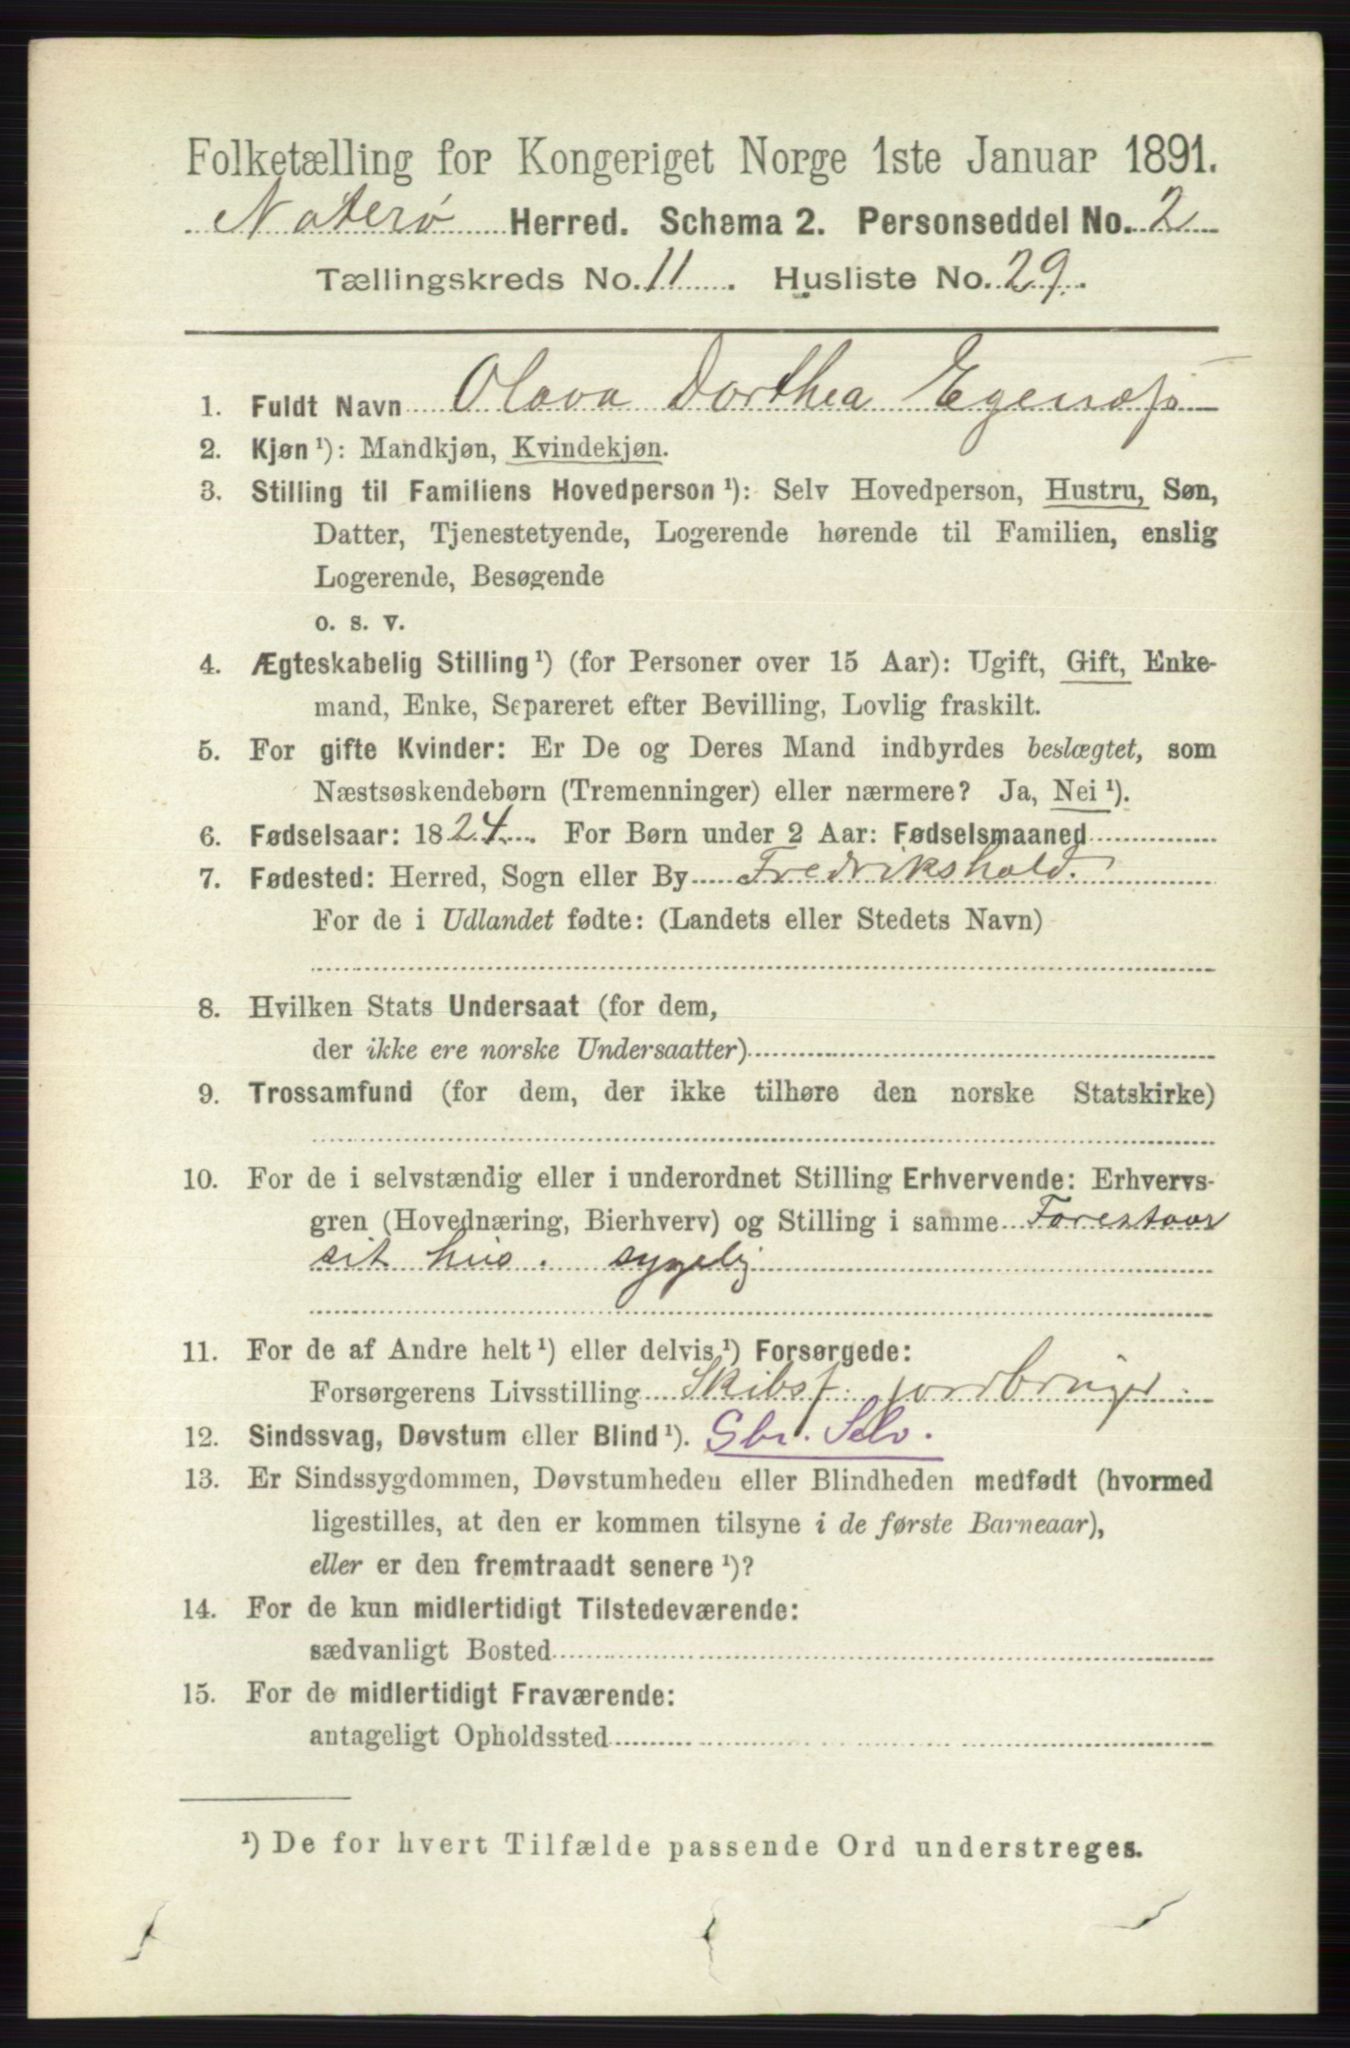 Folketælling for Kongeriget Norge 1ste Januar 1891.
Nøterø Herred. Schema 2. Personseddel No. 2
Tællingskreds No. 11. Husliste No. 29.
1. Fuldt Navn Olava Dorthea Egenæs
2. Kjøn ¹): Mandkjøn, Kvindekjøn.
3. Stilling til Familiens Hovedperson ¹): Selv Hovedperson, Hustru, Søn,
Datter, Tjenestetyende, Logerende hørende til Familien, enslig
Logerende, Besøgende
o. s. v.
4. Ægteskabelig Stilling ¹) (for Personer over 15 Aar): Ugift, Gift, Enke-
mand, Enke, Separeret efter Bevilling, Lovlig fraskilt.
5. For gifte Kvinder: Er De og Deres Mand indbyrdes beslægtet, som
Næstsøskendebørn (Tremenninger) eller nærmere? Ja, Nei ¹).
6. Fødselsaar: 1824. For Børn under 2 Aar: Fødselsmaaned
7. Fødested: Herred, Sogn eller By Fredrikshald.
For de i Udlandet fødte: (Landets eller Stedets Navn)
8. Hvilken Stats Undersaat (for dem,
der ikke ere norske Undersaatter)
9. Trossamfund (for dem, der ikke tilhøre den norske Statskirke)
10. For de i selvstændig eller i underordnet Stilling Erhvervende: Erhvervs-
gren (Hovednæring, Bierhverv) og Stilling i samme Forestaar
sit hus. sygelig
11. For de af Andre helt ¹) eller delvis ¹) Forsørgede:
Forsørgerens Livsstilling Skibsf. jordbruger
12. Sindssvag, Døvstum eller Blind ¹). Gbr. Selv.
13. Er Sindssygdommen, Døvstumheden eller Blindheden medfødt (hvormed
ligestilles, at den er kommen tilsyne i de første Barneaar),
eller er den fremtraadt senere ¹)?
14. For de kun midlertidigt Tilstedeværende:
sædvanligt Bosted
15. For de midlertidigt Fraværende:
antageligt Opholdssted
¹) De for hvert Tilfælde passende Ord understreges.